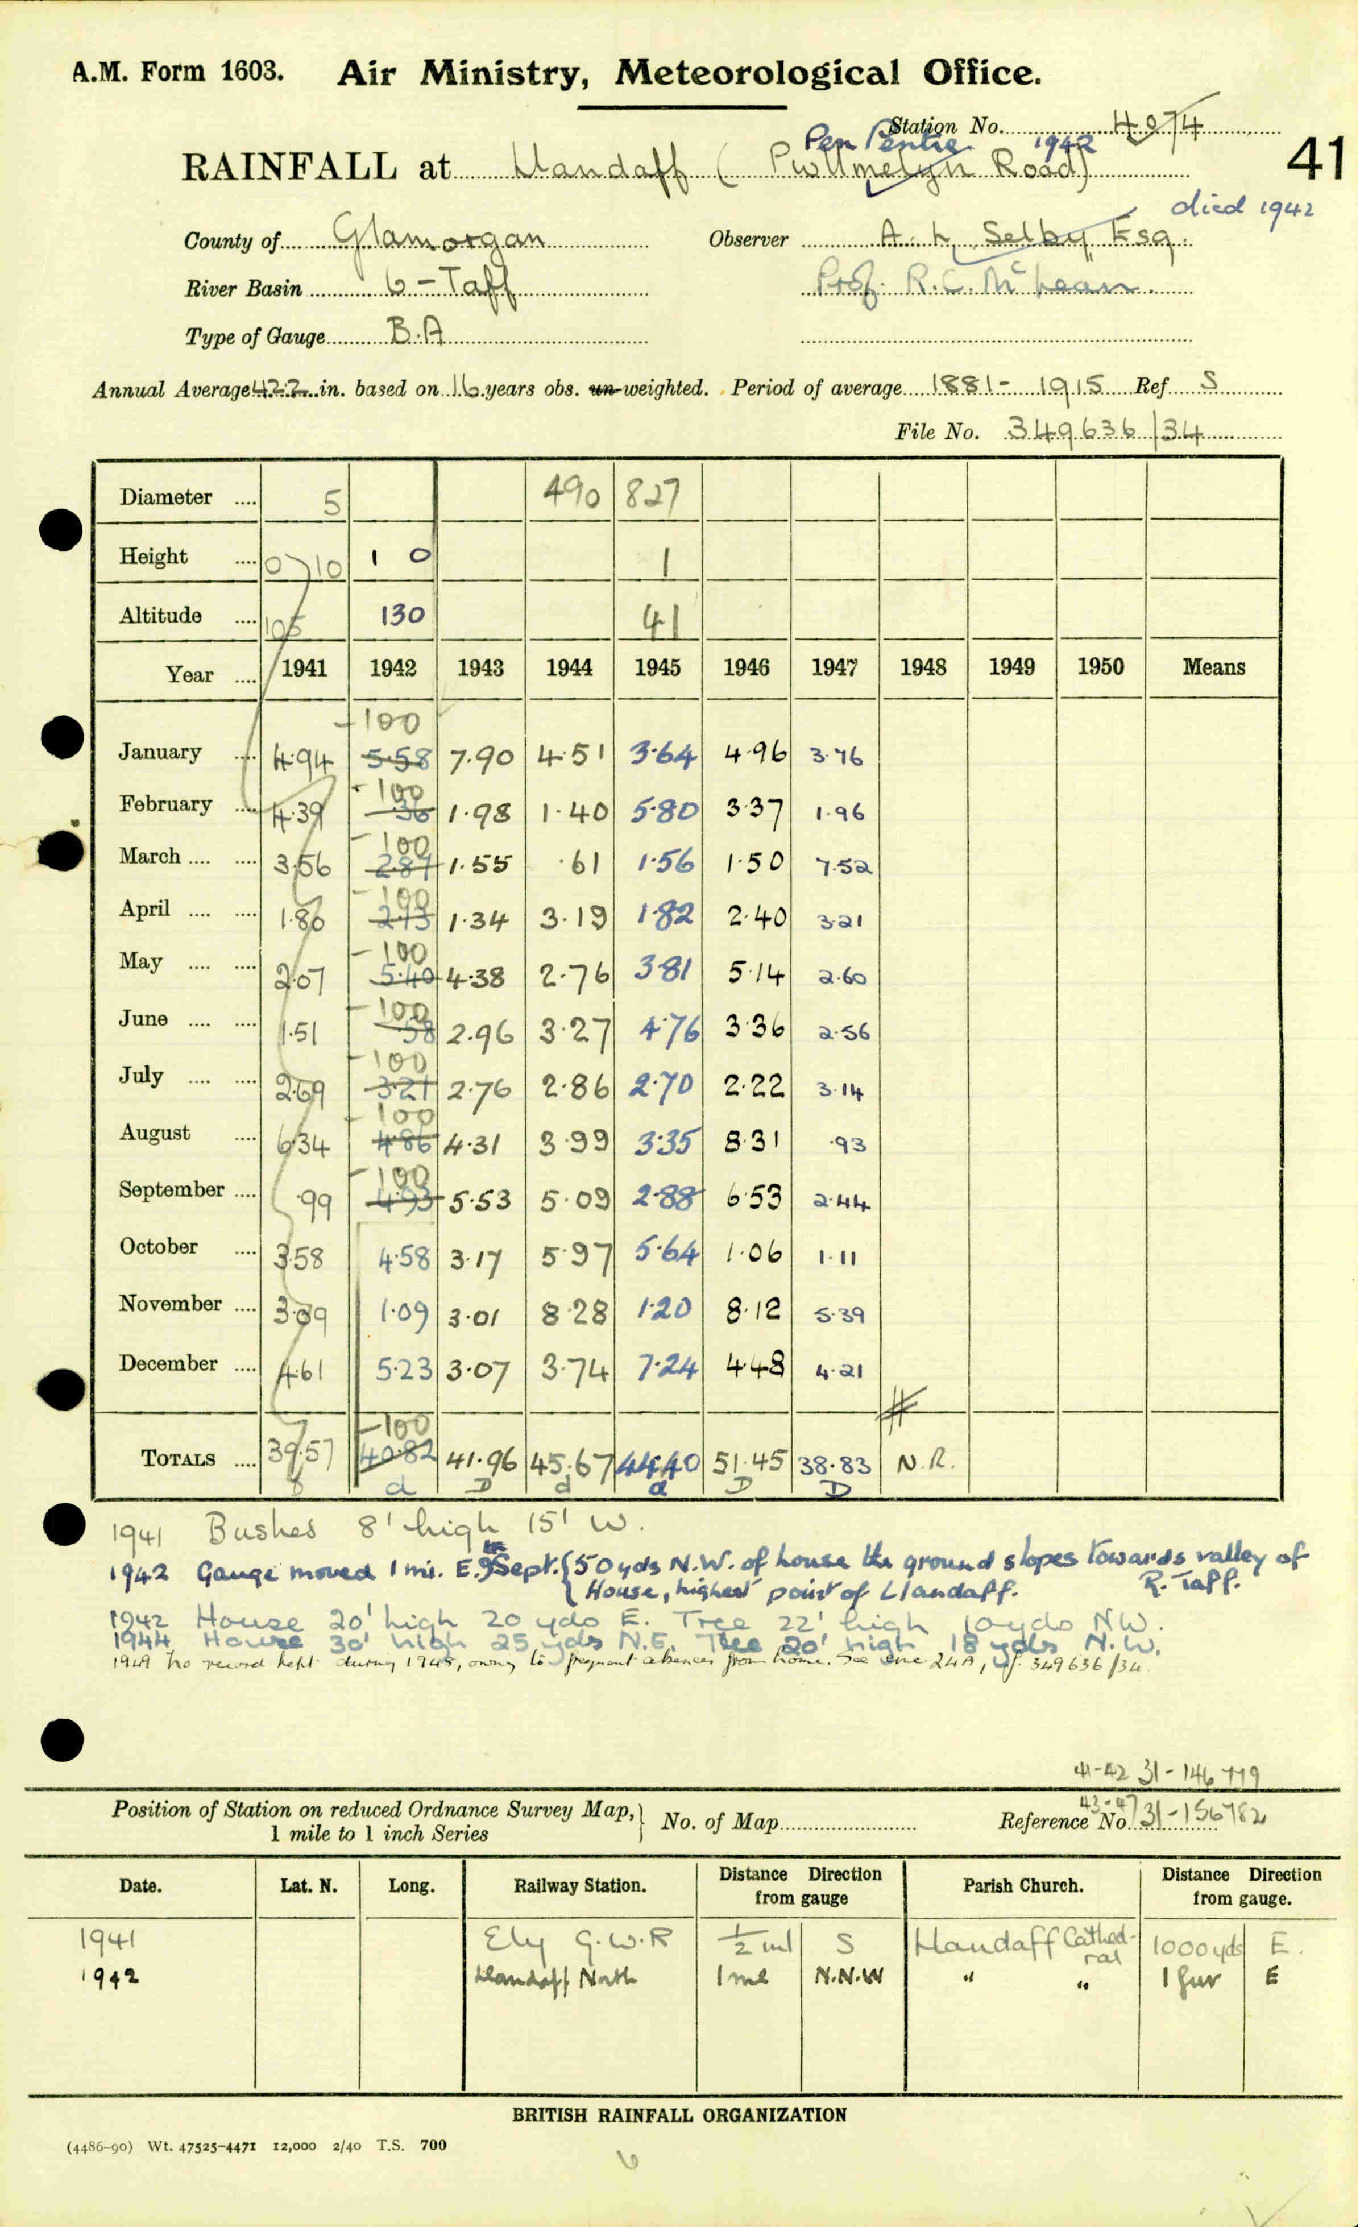 A.M. Form 1603. Air Ministry, Meteorological Office.
Station No. 4074
Pen Pentre 1942
41
RAINFALL at Llandaff (Pwllmelyn Road)
died 1942
County of Glamorgan Observer A. L. Selby, Esq.
River Basin 6 - Taff Prof. R.C. McLean.
Type of Gauge B.A
Annual Average 42.2 in. based on 16 years obs. un-weighted. Period of average 1881 - 1915 Ref S
File No. 349636/34
Diameter .... 5 490 827
Height .... 0 10 1 0 1
Altitude .... 105 130 41
Year .... 1941 1942 1943 1944 1945 1946 1947 1948 1949 1950 Means
-100
January .... 4.94 5.58 7.90 4.51 3.64 4.96 3.76
-100
February .... 4.39 .36 1.98 1.40 5.80 3.37 1.96
-100
March .... .... 3.56 2.87 1.55 .61 1.56 1.50 7.52
-100
April .... .... 1.80 2.13 1.34 3.19 1.82 2.40 3.21
-100
May .... .... 2.07 5.40 4.38 2.76 3.81 5.14 2.60
-100
June .... .... 1.51 .58 2.96 3.27 4.76 3.36 2.56
-100
July .... .... 2.69 3.21 2.76 2.86 2.70 2.22 3.14
-100
August .... 6.34 4.86 4.31 3.99 3.35 8.31 .93
-100
September .... .99 4.93 5.53 5.09 2.88 6.53 2.44
October .... 3.58 4.58 3.17 5.97 5.64 1.06 1.11
November .... 3.09 1.09 3.01 8.28 1.20 8.12 5.39
December .... 4.61 5.23 3.07 3.74 7.24 4.48 4.21
-100
TOTALS .... 39.57 40.82 41.96 45.67 44.40 51.45 38.83 N.R.
d D d d D D
1941 Bushes 8' high 15' W.
1942 Gauge moved 1 mi. E. 9th Sept. { 50 yds N.W. of house the ground slopes towards valley of
House, highest point of Llandaff. R. Taff.
1942 House 20' high 20 yds E. Tree 22' high 10 yds NW.
1944 House 30' high 25 yds N.E. Tree 20' high 18 yds N.W.
1949 No record kept during 1948, owing to frequent absences from home. See enc 24A, of 349636/34.
41-42 31-146779
43-47 31-156782
Position of Station on reduced Ordnance Survey Map, } No. of Map Reference No
1 mile to 1 inch Series
Date. Lat. N. Long. Railway Station. Distance Direction from gauge Parish Church. Distance Direction from gauge.
1941 Ely G.W.R 1/2 ml S Llandaff Cathedral 1000 yds E.
1942 Llandaff North 1 ml N.N.W " " 1 fur E
BRITISH RAINFALL ORGANIZATION
(4486-90) Wt. 47525-4471 12,000 2/40 T.S. 700
6